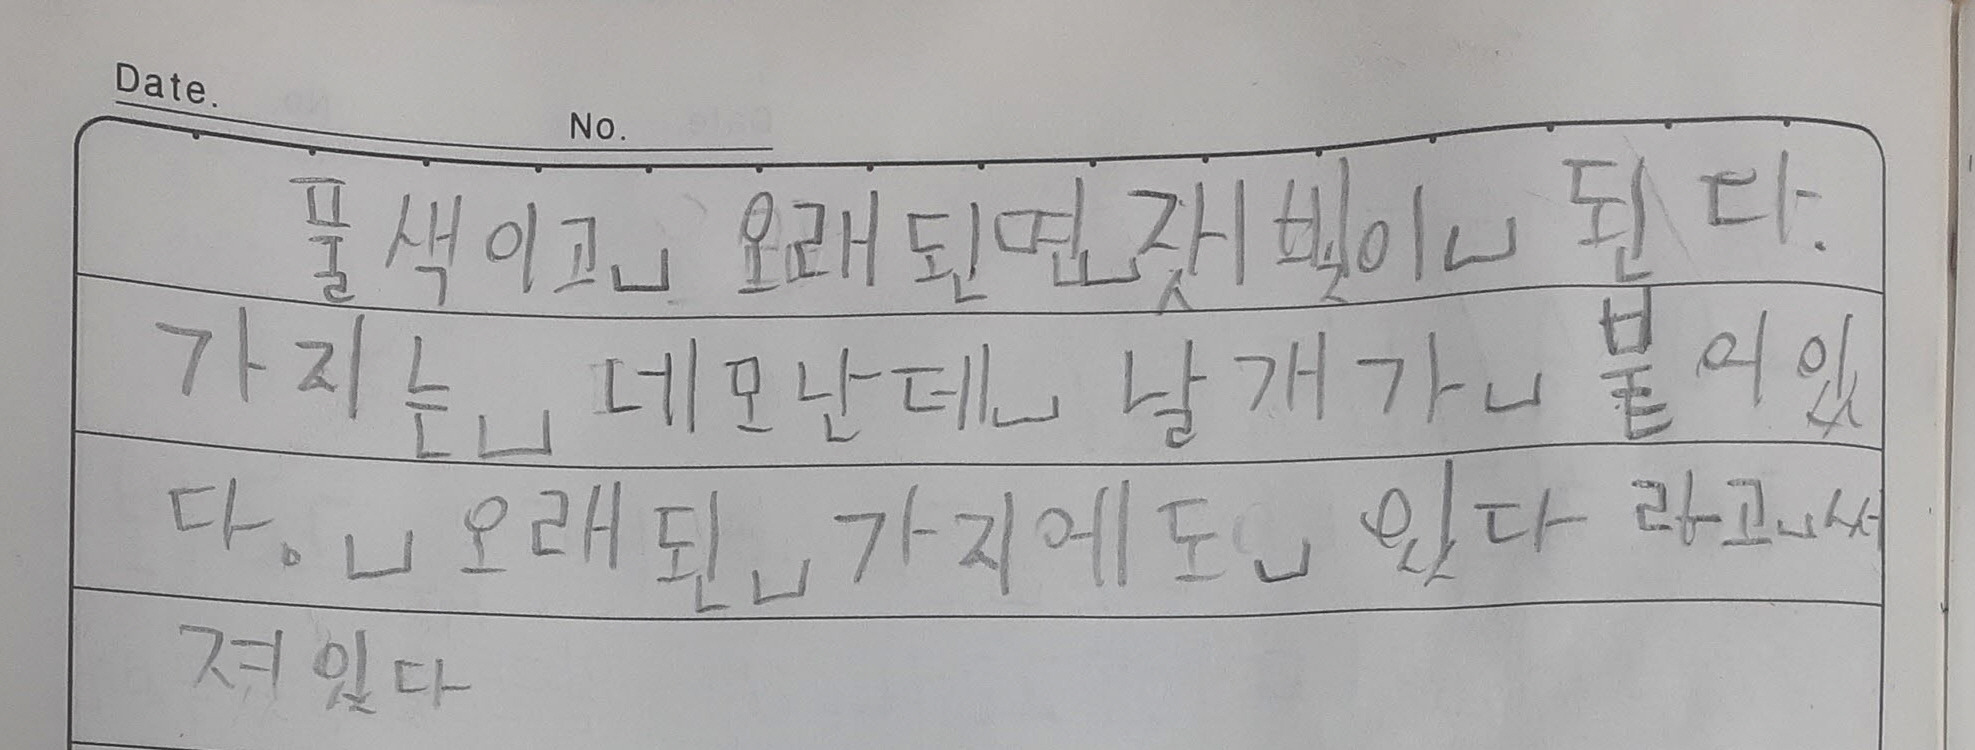 Date.
No.
풀색이고␣오래된면␣잿빛이␣된다.
가지는␣네모난데␣날개가␣붙어있
다.␣오래된␣가지에도␣있다 라고␣써
져있다